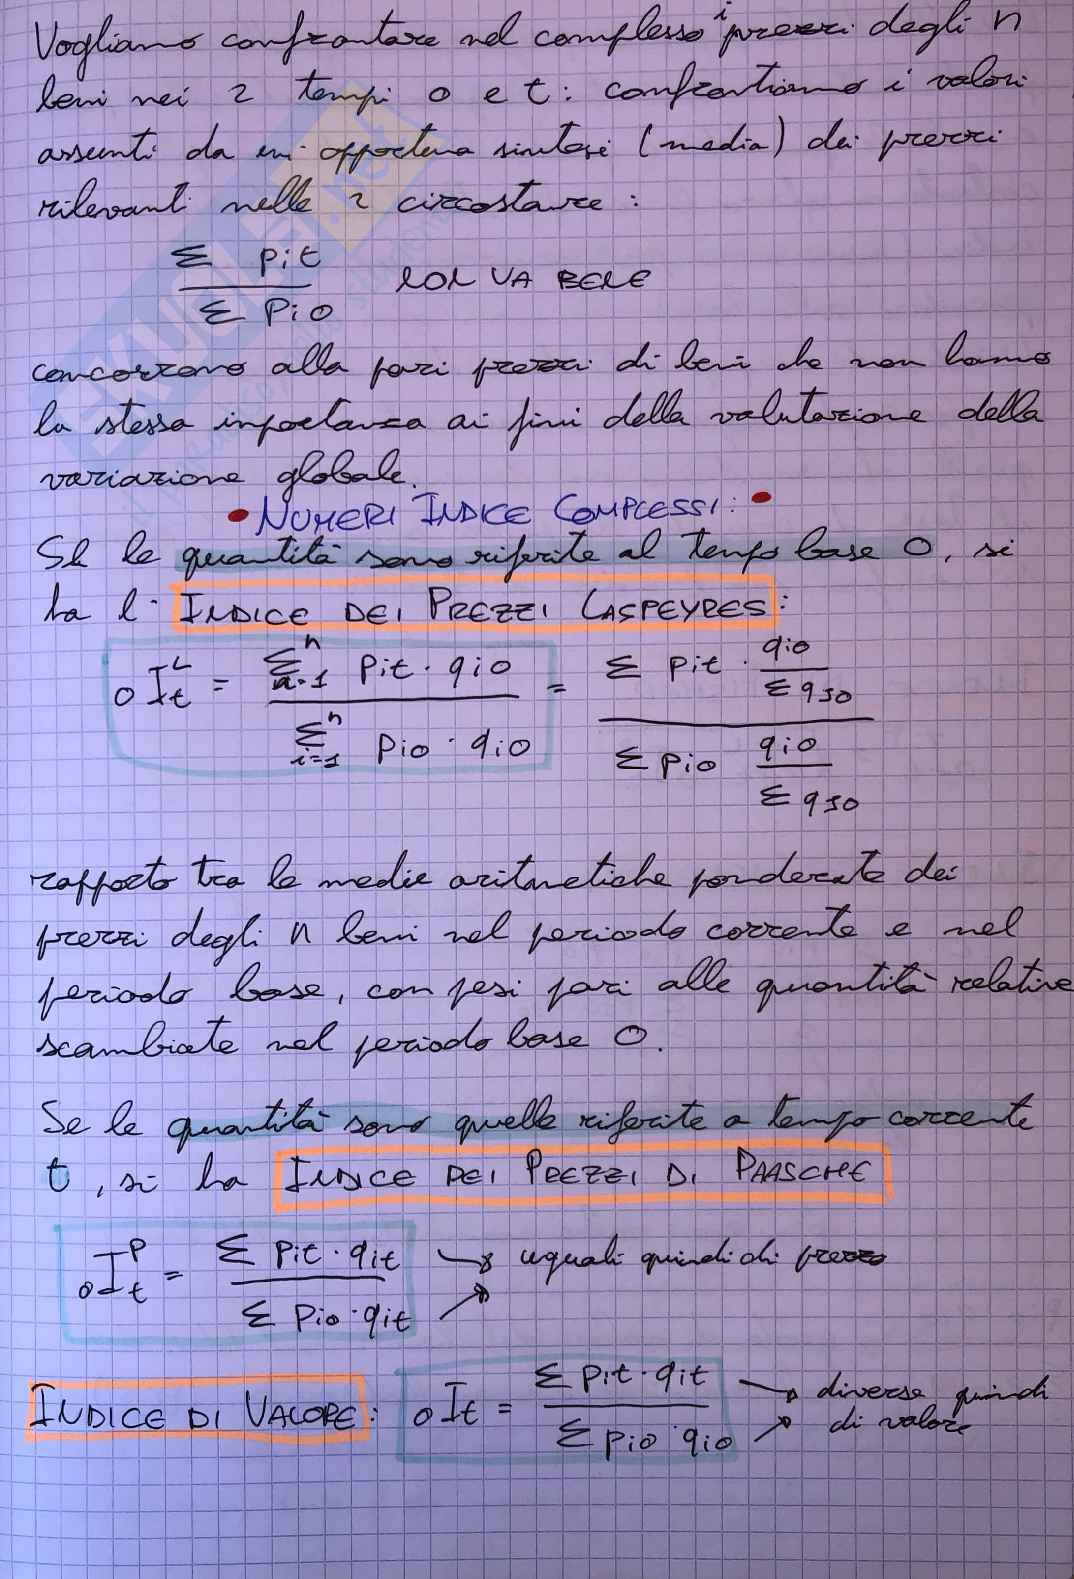 Vogliamo confrontare nel complesso i prezzi degli n
beni nei 2 tempi 0 e t: confrontiamo i valori
assunti da un' opportuna sintesi (media) dei prezzi
rilevanti nelle 2 circostanze:
Σ pit / Σ pi0 NON VA BENE
concorrono alla pari prezzi di beni che non hanno
la stessa importanza ai fini della valutazione della
variazione globale.
• NUMERI INDICE COMPLESSI: •
Se le quantità sono riferite al tempo base 0, si
ha l' INDICE DEI PREZZI LASPEYRES:
0ItL = Σni=1 pit · qi0 / Σni=1 pi0 · qi0 = Σ pit · qi0/Σqj0 / Σ pi0 qi0/Σqj0
rapporto tra le medie aritmetiche ponderate dei
prezzi degli n beni nel periodo corrente e nel
periodo base, con pesi pari alle quantità relative
scambiate nel periodo base 0.
Se le quantità sono quelle riferite a tempo corrente
t, si ha INDICE DEI PREZZI DI PAASCHE
0ItP = Σ pit · qit / Σ pi0 · qit → uguali quindi di prezzo
INDICE DI VALORE: 0It = Σ pit · qit / Σ pi0 · qi0 → diverse quindi
di valore